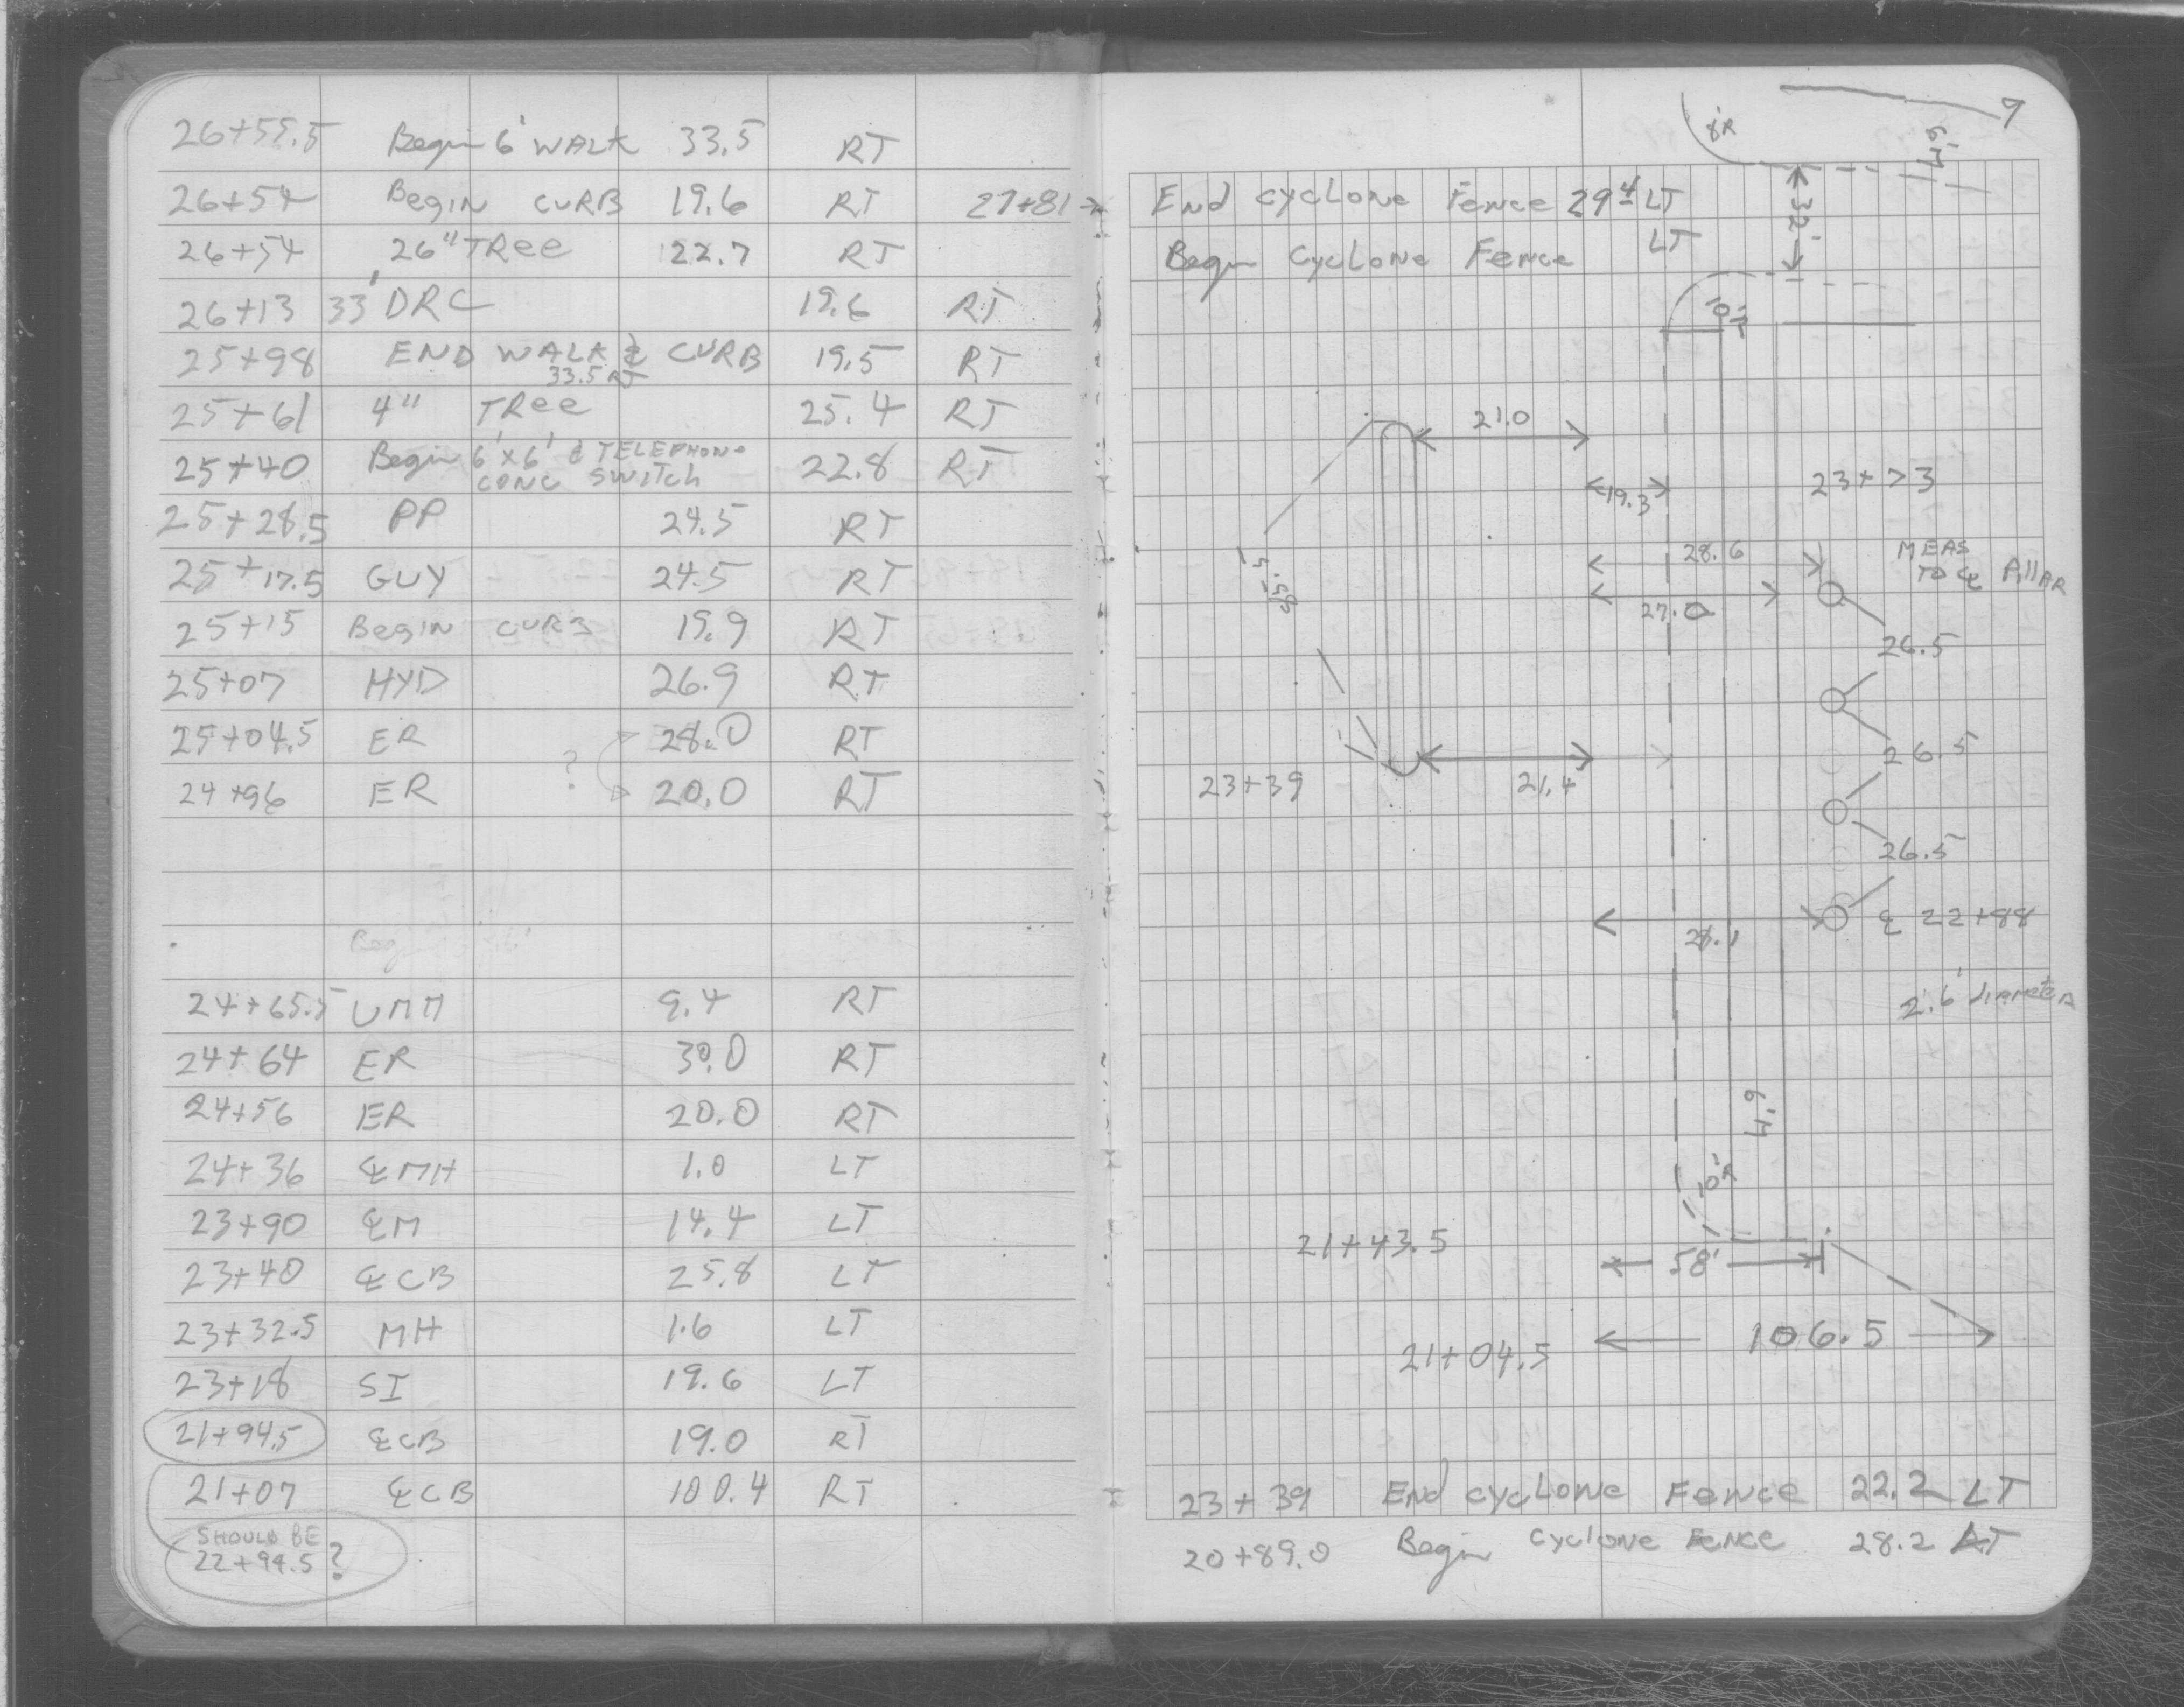 26+59.5 Begin 6' WALK 33.5 RT
26+54 Begin CURB 19.6 RT 27+81
26+54 26" TRee 22.7 RT
26+13 33' DRC 19.6 RT
25+98 END WALK & CURB 19.5 RT
33.5 RT
25+61 4" TRee 25.4 RT
25+40 Begin 6'x6' & TELEPHONe 22.8 RT
CONC SWITCH
25+28.5 PP 24.5 RT
25+17.5 GUY 24.5 RT
25+15 Begin CURB 19.9 RT
25+07 HYD 26.9 RT
25+04.5 ER 28.0 RT
?
24+96 ER 20.0 RT
24+65.5 UMH 9.4 RT
24+64 ER 30.0 RT
24+56 ER 20.0 RT
24+36 ℄ MH 1.0 LT
23+90 ℄ M 14.4 LT
23+40 ℄ CB 25.8 LT
23+32.5 MH 1.6 LT
23+18 SI 19.6 LT
21+94.5 ℄ CB 19.0 RT
21+07 ℄ CB 100.4 RT
SHOULD BE
22+94.5?
9
8'R
6.7
End cyclone Fence 29.4 LT
32'
Begin Cyclone Fence LT
10'R
21.0
19.3
23+73
28.6
MEAS
TO ℄ PillAR
27.0
26.5
26.5
23+39
21.4
26.5
28.1
℄ 22+88
2.6' diameteR
4.9
10'R
21+43.5
58'
21+04.5
106.5
23+39 End cyclone Fence 22.2 LT
20+89.0 Begin Cyclone Fence 28.2 LT